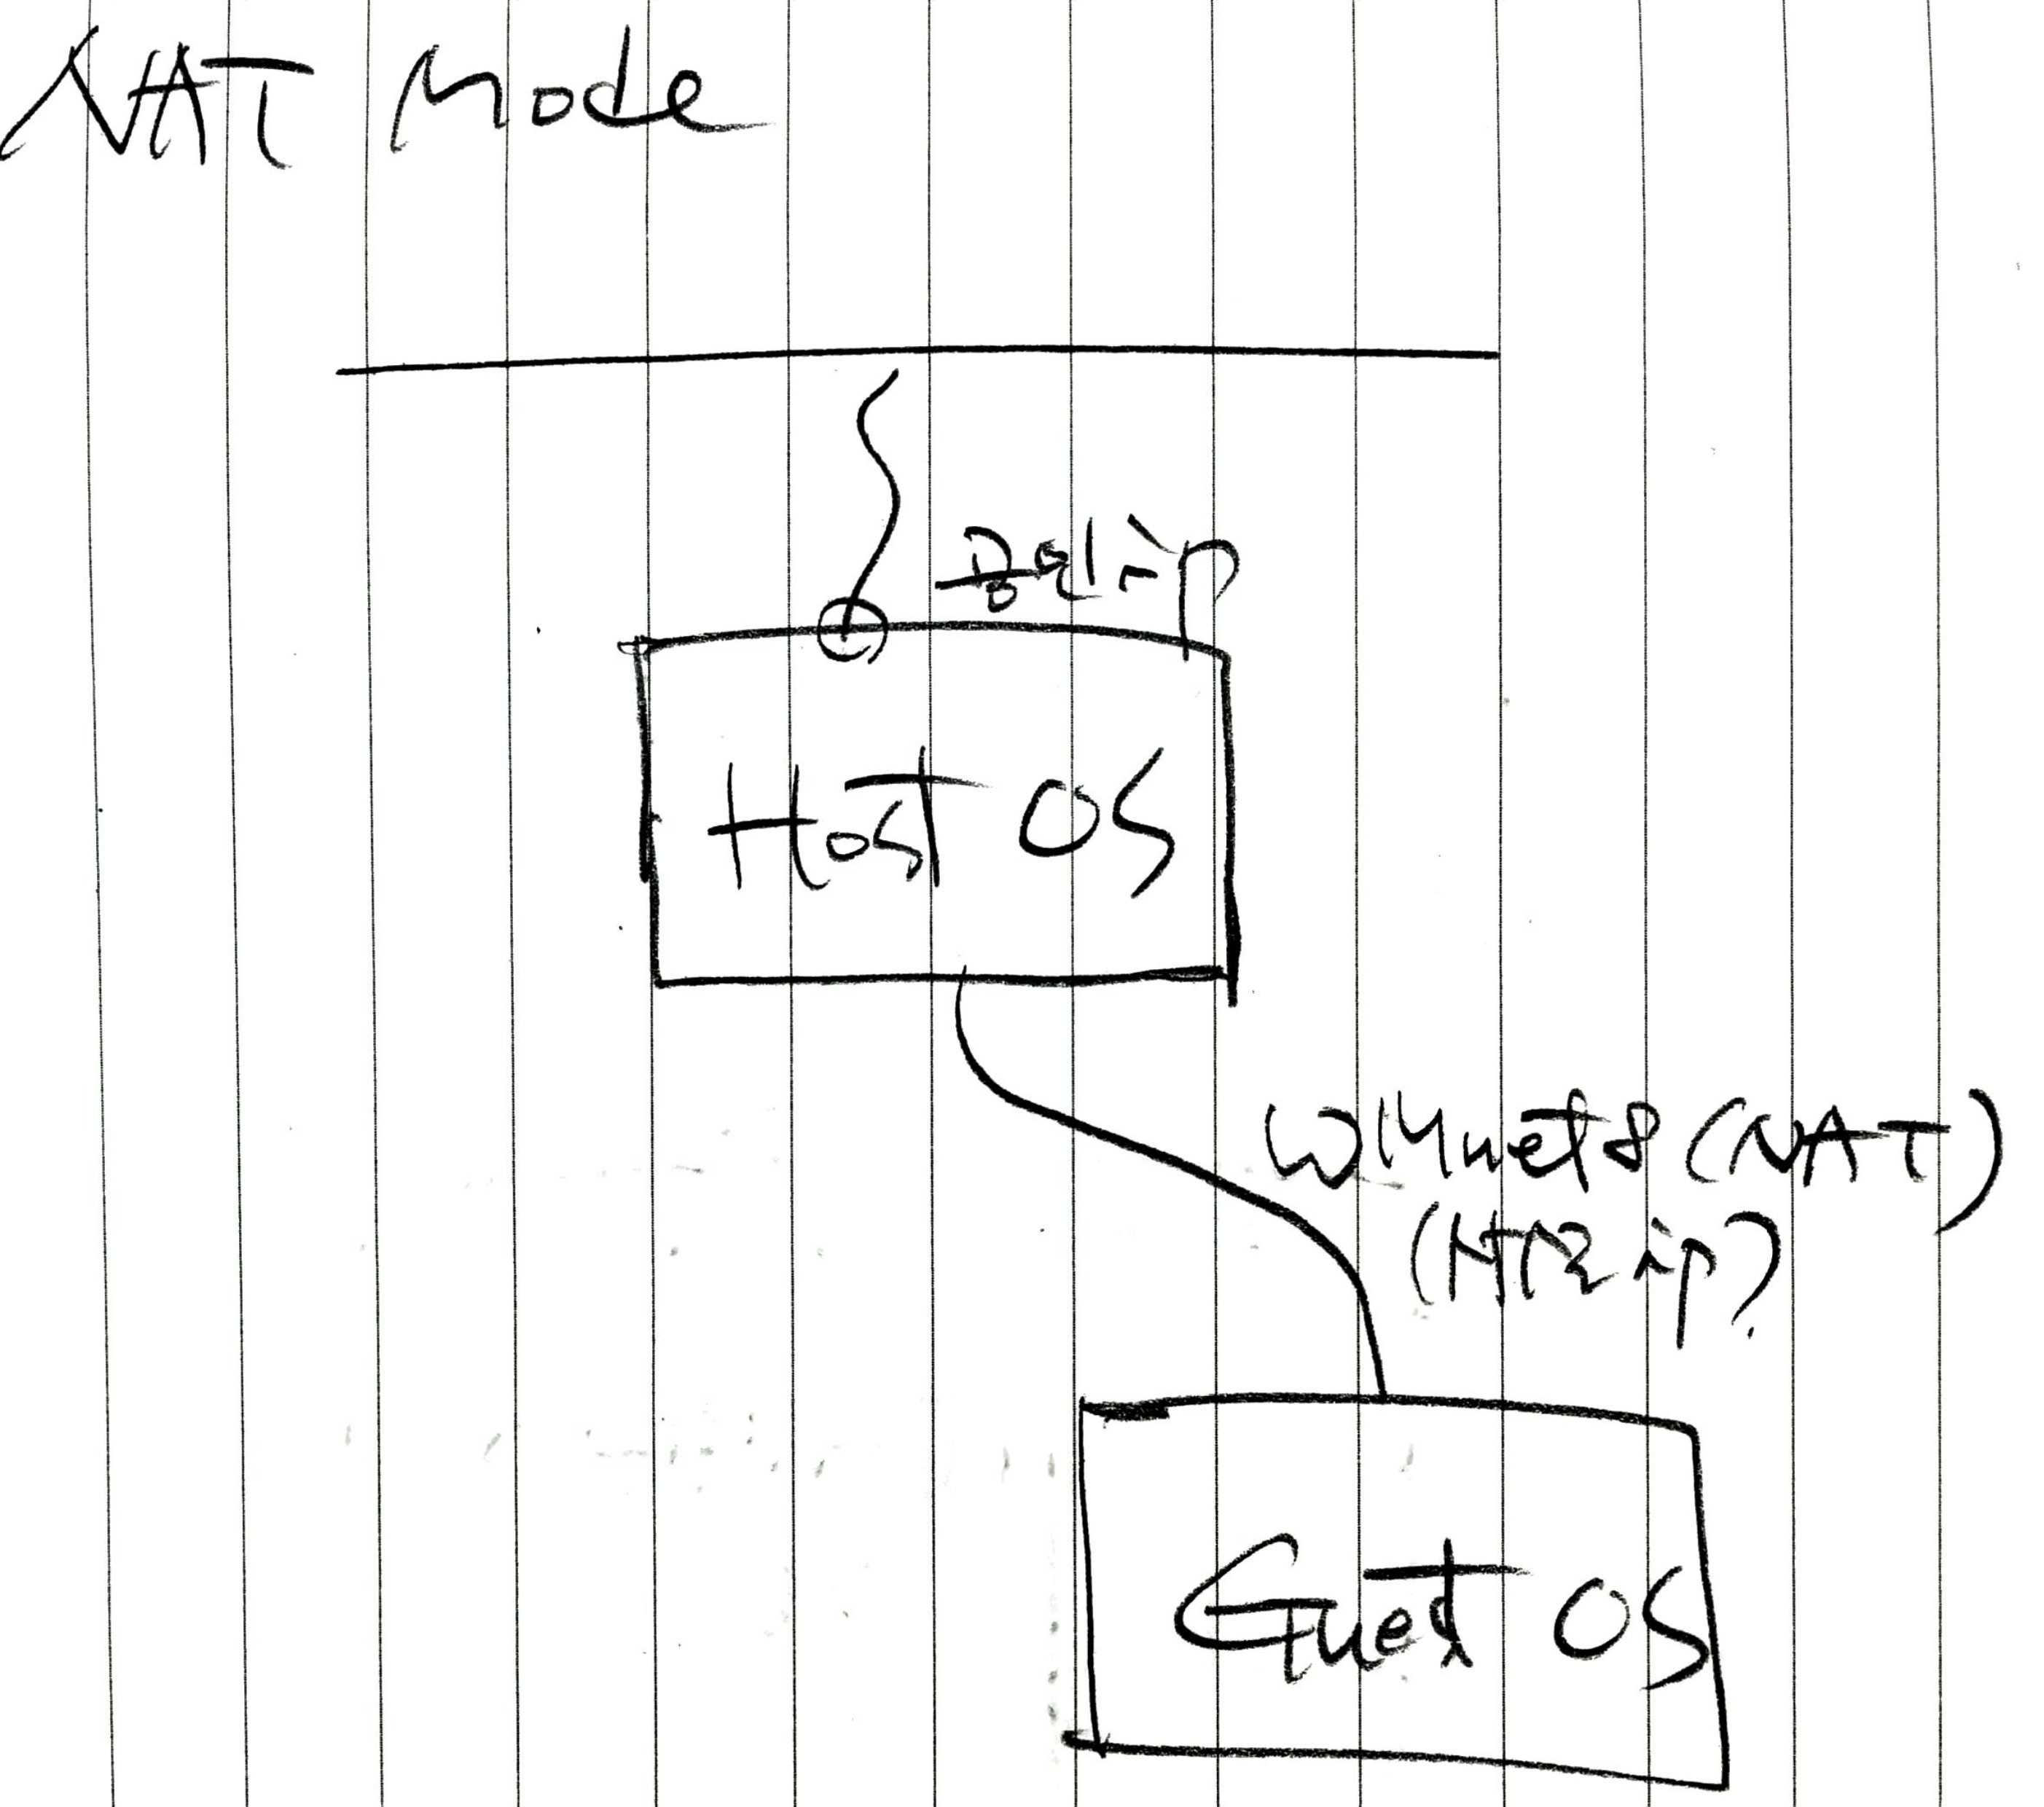 NAT Mode
공인 ip
Host OS
WMnet8 (NAT)
(사설 ip?
Guest OS